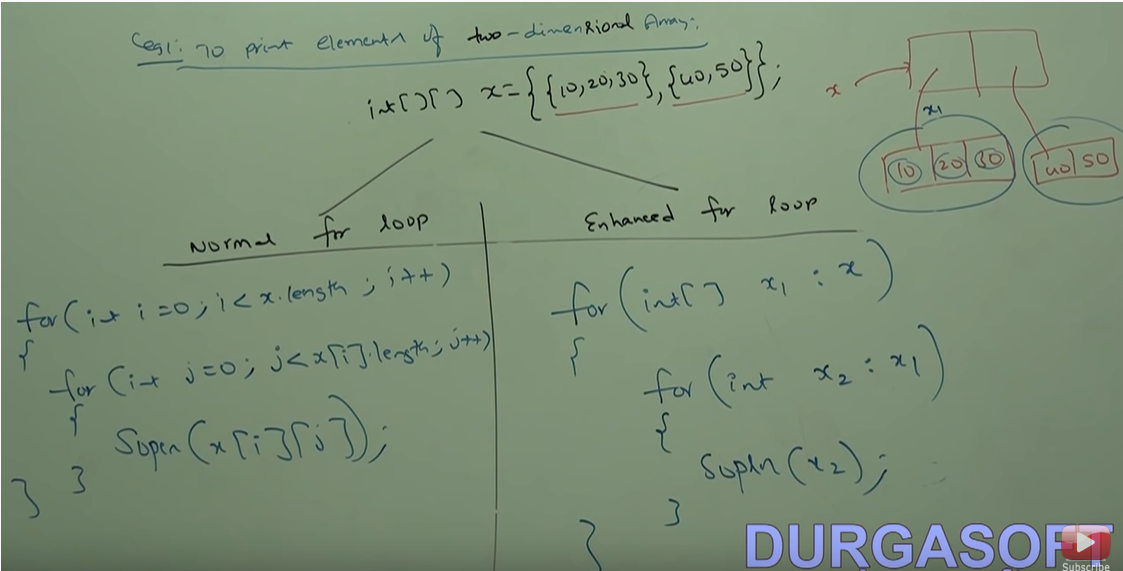 Eg1: To print elements of two-dimensional Array:
int[][] x={{10,20,30},{40,50}};
x
x1
10 20 30
40 50
Normal for loop
for(int i=0; i<x.length; i++)
{
for(int j=0; j<x[i].length; j++)
{
Sopln(x[i][j]);
}
}
Enhanced for loop
for(int[] x1 : x)
{
for(int x2 : x1)
{
Sopln(x2);
}
}
DURGASOFT
Subscribe